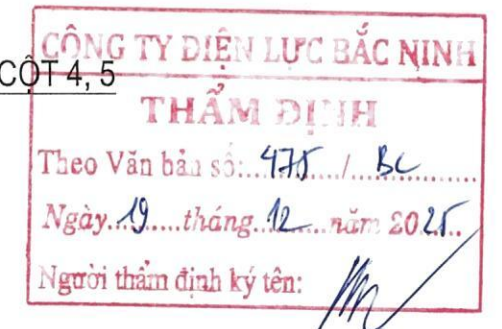 CÔNG TY ĐIỆN LỰC BẮC NINH
CỘT 4, 5
THẨM ĐỊNH
Theo Văn bản số:...475.../...BC...
Ngày.19....tháng.12....năm 2025..
Người thẩm định ký tên: